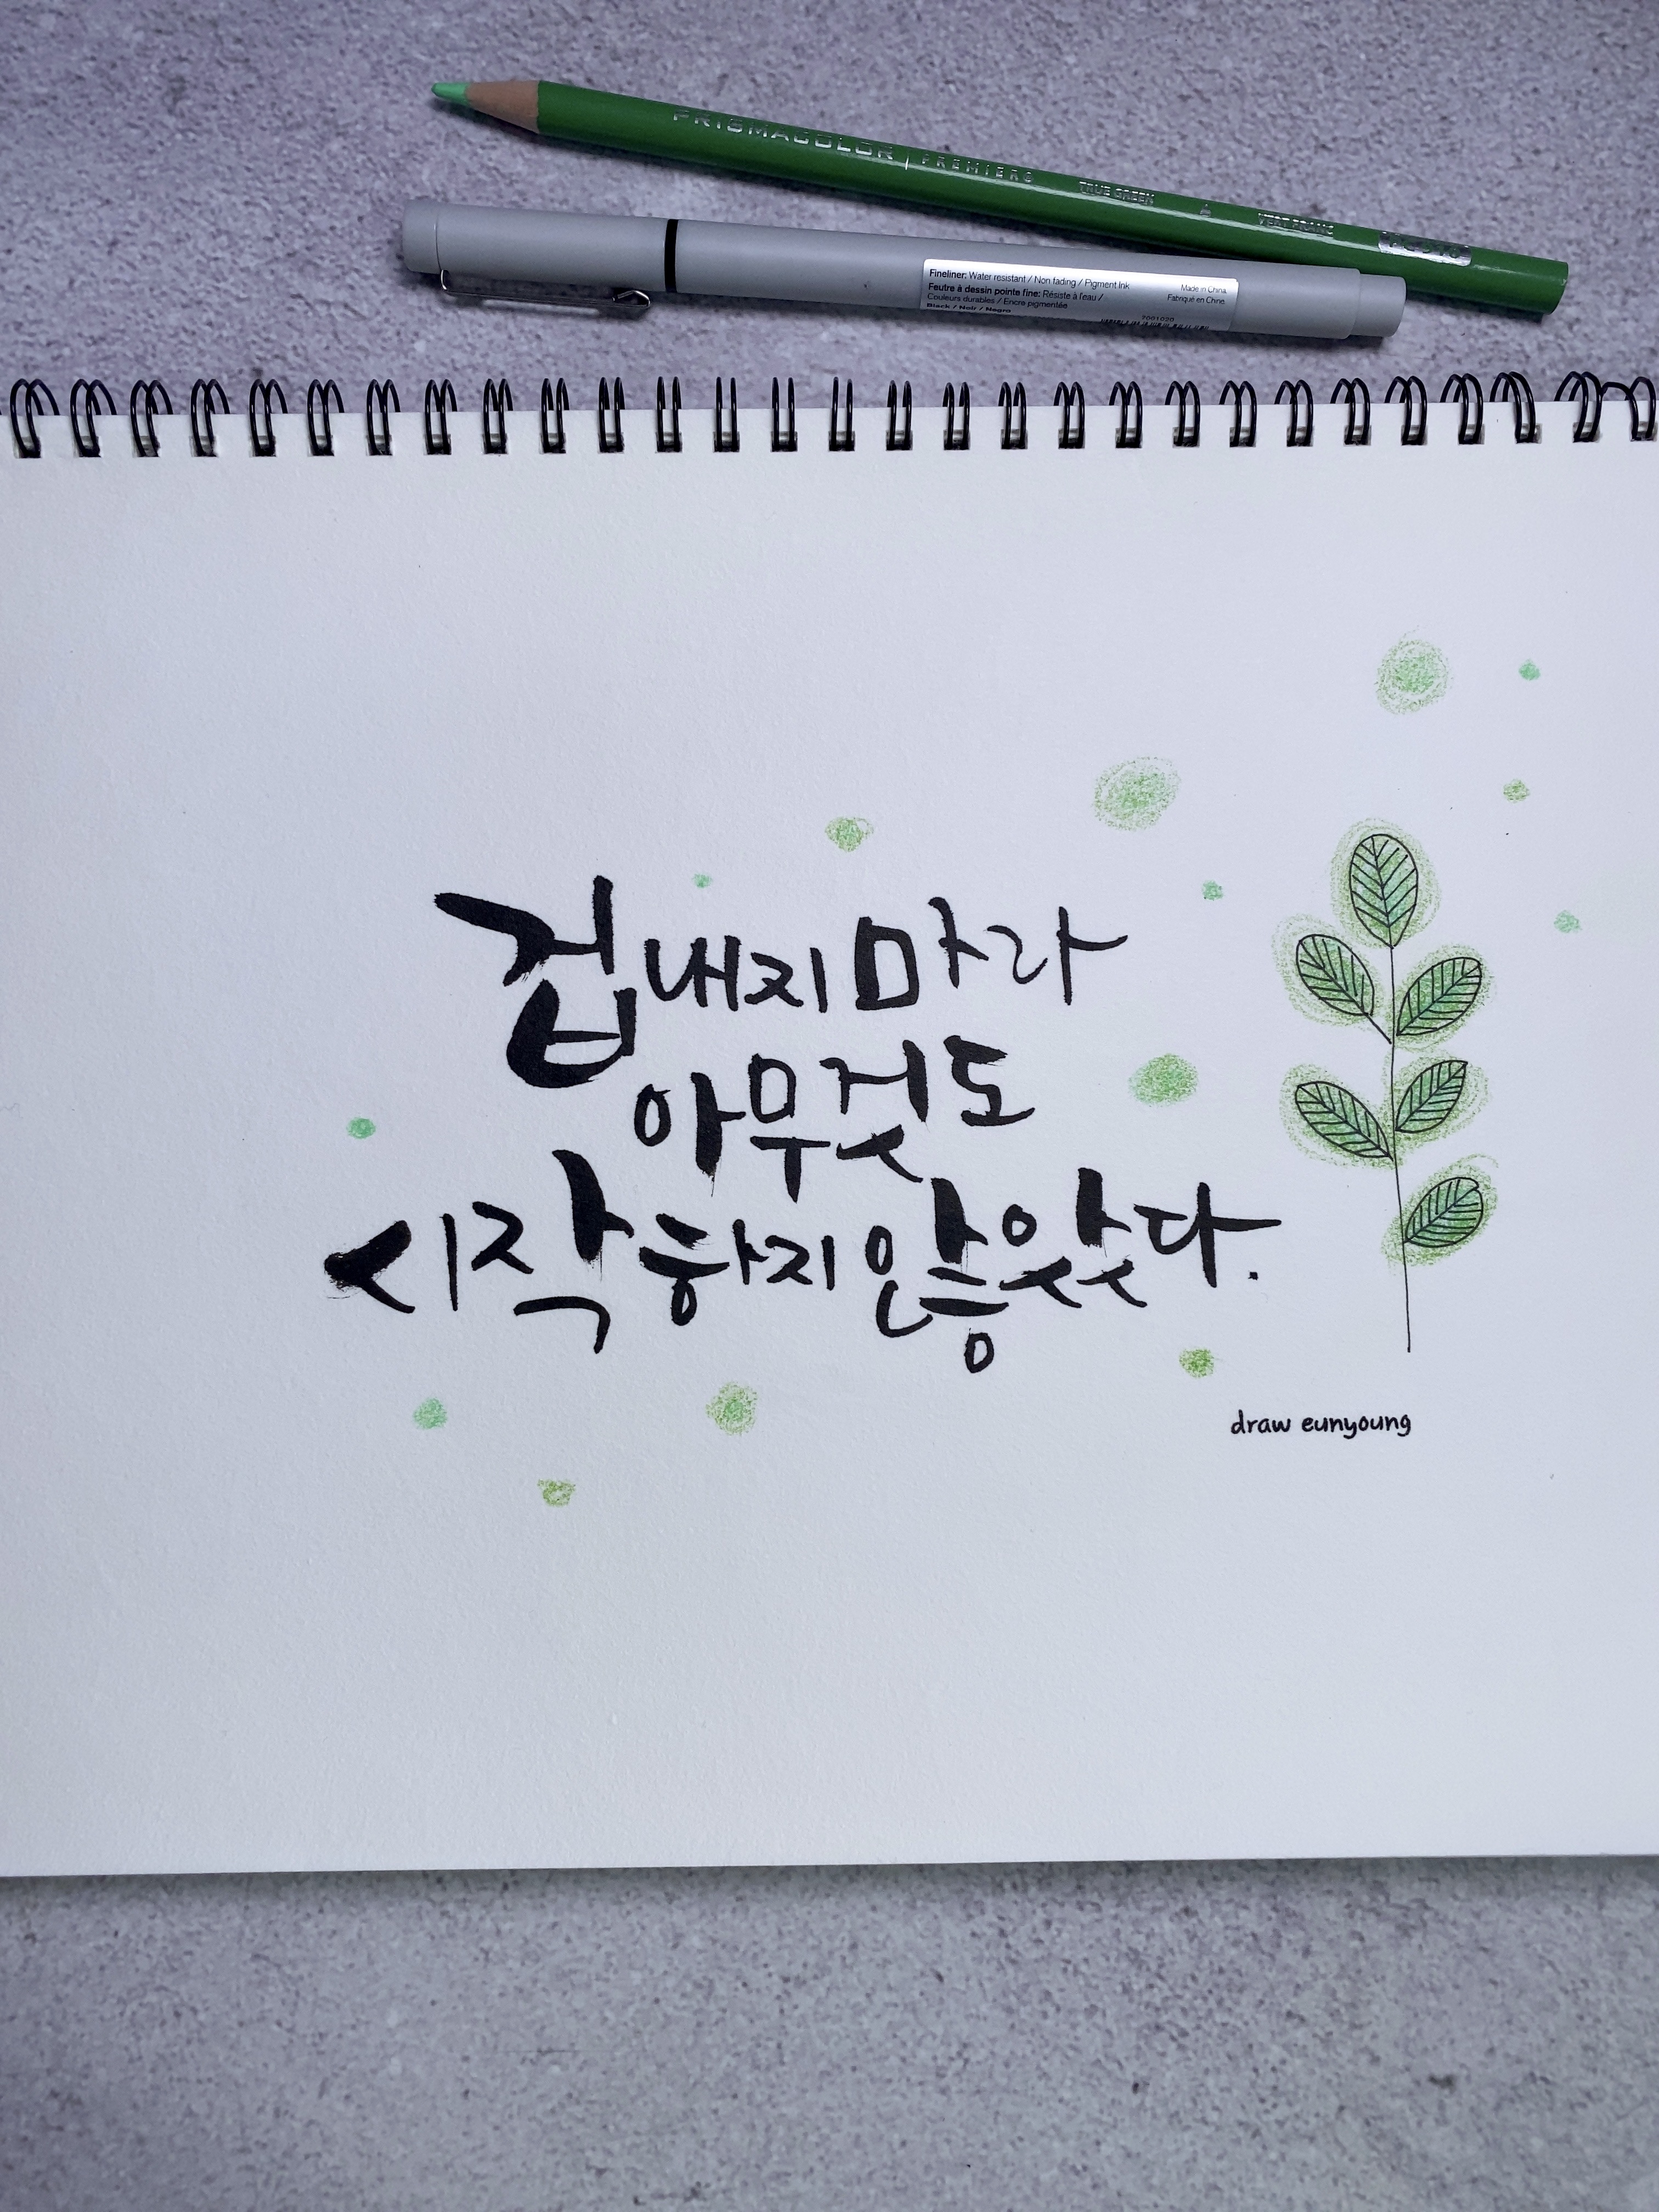 PRISMACOLOR | PREMIER®
TRUE GREEN
VERT FRANC
Fineliner: Water resistant / Non fading / Pigment Ink
Feutre à dessin pointe fine: Résiste à l'eau /
Couleurs durables / Encre pigmentée
Black / Noir / Negro
Made in China
Fabriqué en Chine
겁내지마라
아무것도
시작하지 않았다.
draw eunyoung